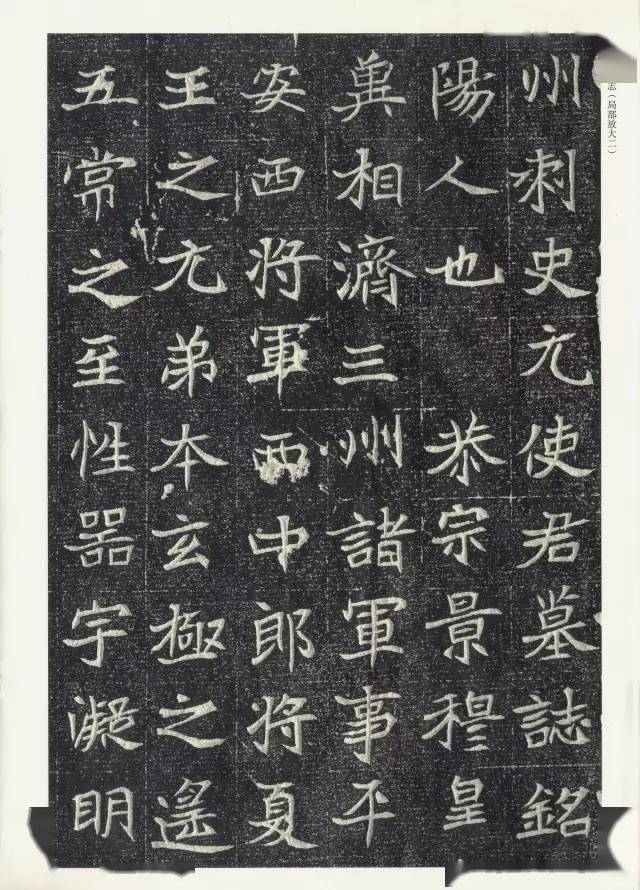 志(局部放大二)
州刺史元使君墓誌銘
陽人也 恭宗景穆皇
冀相濟三州諸軍事平
安西将軍西中郎将夏
王之元弟本玄極之遙
五常之至性器宇凝眀